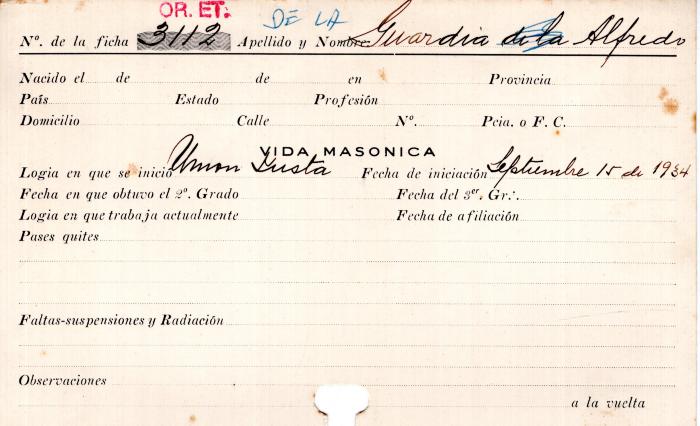 OR. ET. DE LA
Nº. de la ficha 3112 Apellido y Nombre Guardia de la Alfredo
Nacido el de de en Provincia
País Estado Profesión
Domicilio Calle Nº. Pcia. o F. C.
VIDA MASONICA
Logia en que se inició Union Justa Fecha de iniciación Septiembre 15 de 1934
Fecha en que obtuvo el 2º. Grado Fecha del 3er. Gr∴.
Logia en que trabaja actualmente Fecha de afiliación
Pases quites
Faltas-suspensiones y Radiación
Observaciones
a la vuelta